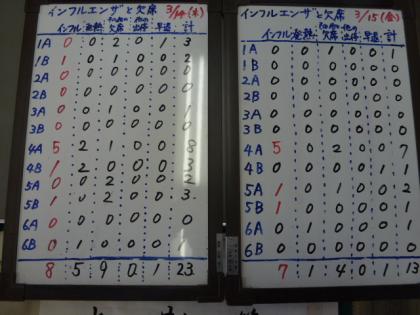 インフルエンザと欠席 3/14(木)
インフル 発熱 その他の欠席 他の出停 早退 計
1A 0 0 2 0 1 3
1B 1 0 1 0 0 2
2A 0 0 0 0 0 0
2B 0 0 0 0 0 0
3A 0 1 0 0 0 1
3B 0 0 0 0 0 0
4A 5 2 1 0 0 8
4B 1 2 0 0 0 3
5A 0 0 2 0 0 2
5B 1 0 2 0 0 3
6A 0 0 0 0 0 0
6B 0 0 1 0 0 1
8 5 9 0 1 23
インフルエンザと欠席 3/15(金)
インフル 発熱 その他の欠席 他の出停 早退 計
1A 0 0 0 0 1 1
1B 0 0 0 0 0 0
2A 0 0 0 0 0 0
2B 0 0 0 0 0 0
3A 0 0 0 0 0 0
3B 0 0 0 0 0 0
4A 5 0 2 0 0 7
4B 0 1 0 0 0 1
5A 1 0 1 0 0 2
5B 1 0 0 0 0 1
6A 0 0 0 0 0 0
6B 0 0 1 0 0 1
7 1 4 0 1 13